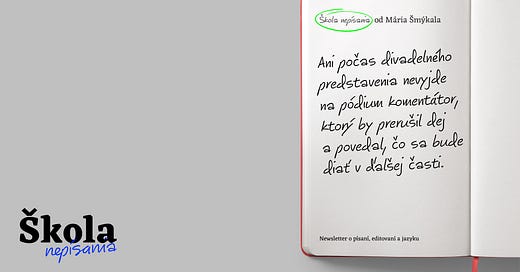 Škola nepísania od Mária Šmýkala
Ani počas divadelného
predstavenia nevyjde
na pódium komentátor,
ktorý by prerušil dej
a povedal, čo sa bude
diať v ďalšej časti.
Newsletter o písaní, editovaní a jazyku
Škola
nepísania